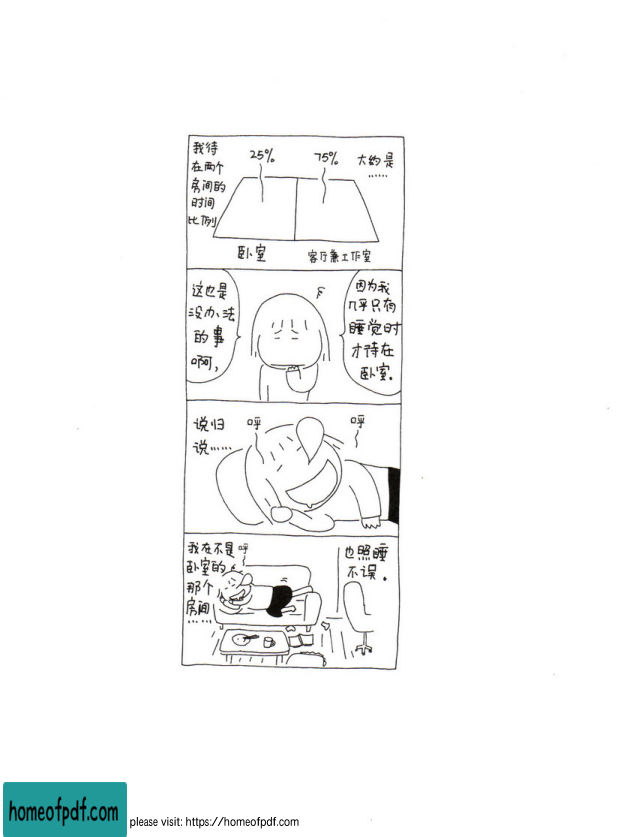 我待
在两个
房间的
时间
比例
25%
75%
大约是
……
卧室
客厅兼工作室
这也是
没办法
的事
啊,
因为我
几乎只有
睡觉时
才待在
卧室.
说归
说……
呼
呼
我在不是
卧室的
那个
房间
……
呼
也照睡
不误.
homeofpdf.com
please visit: https://homeofpdf.com